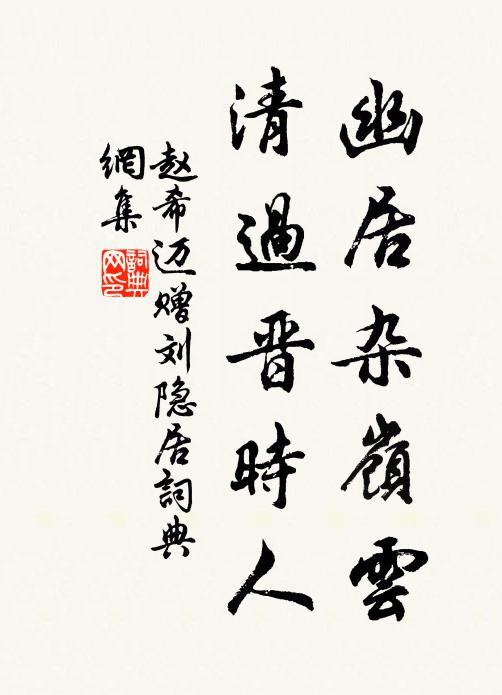 幽居杂嶺雲
清過晋時人
赵希迈赠刘隐居詞典
網集
詞典
网印